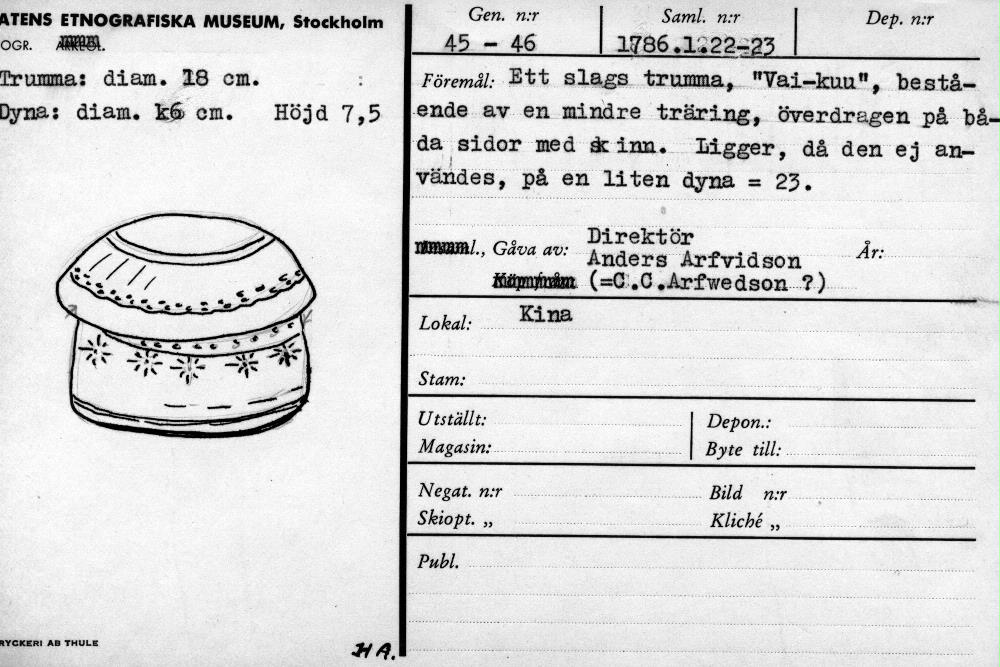 ATENS ETNOGRAFISKA MUSEUM, Stockholm
OGR.
Trumma: diam. 18 cm.
Dyna: diam. 16 cm. Höjd 7,5
RYCKERI AB THULE
HA.
Gen. n:r
45 - 46
Saml. n:r
1786.1.22-23
Dep. n:r
Föremål: Ett slags trumma, "Vai-kuu", bestå-
ende av en mindre träring, överdragen på bå-
da sidor med skinn. Ligger, då den ej an-
vändes, på en liten dyna = 23.
l., Gåva av: Direktör
Anders Arfvidson
År:
(=C.C.Arfwedson ?)
Lokal: Kina
Stam:
Utställt:
Depon.:
Magasin:
Byte till:
Negat. n:r
Bild n:r
Skiopt. „
Kliché „
Publ.